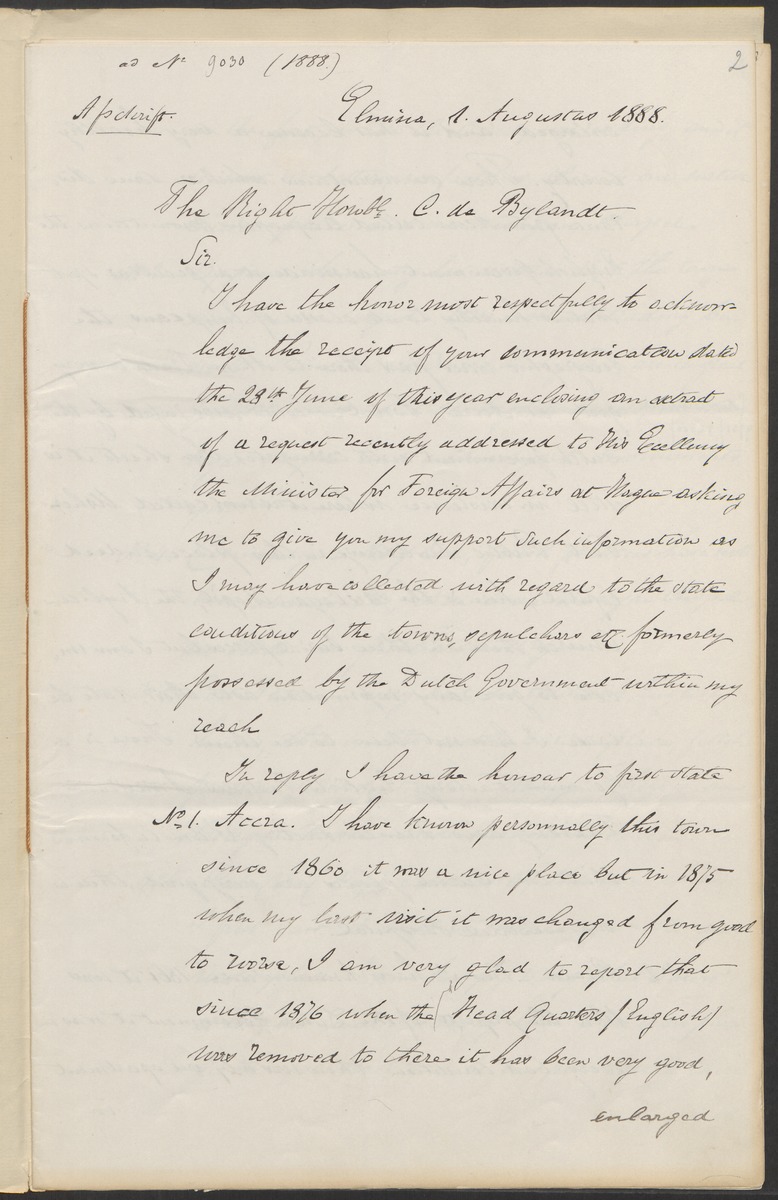 ad No 9030 (1888.)
2
Afschrift.
Elmina, 1. Augustus 1888.
The Right Honble. C. de Bylandt.
Sir.
I have the honor most respectfully to acknow-
ledge the receipt of your communication dated
the 28th June of this year enclosing an extract
of a request recently addressed to His Excellency
the Minister for Foreign Affairs at Hague asking
me to give you my support such information as
I may have collected with regard to the state
conditions of the towns, sepulchers etc formerly
possessed by the Dutch Government within my
reach
In reply I have the honour to first state
No 1. Accra. I have known personnally this town
since 1860 it was a nice place but in 1875
when my last visit it was changed from good
to worse, I am very glad to report that
since 1876 when the Head Quarters /English/
was removed to there it has been very good,
enlarged